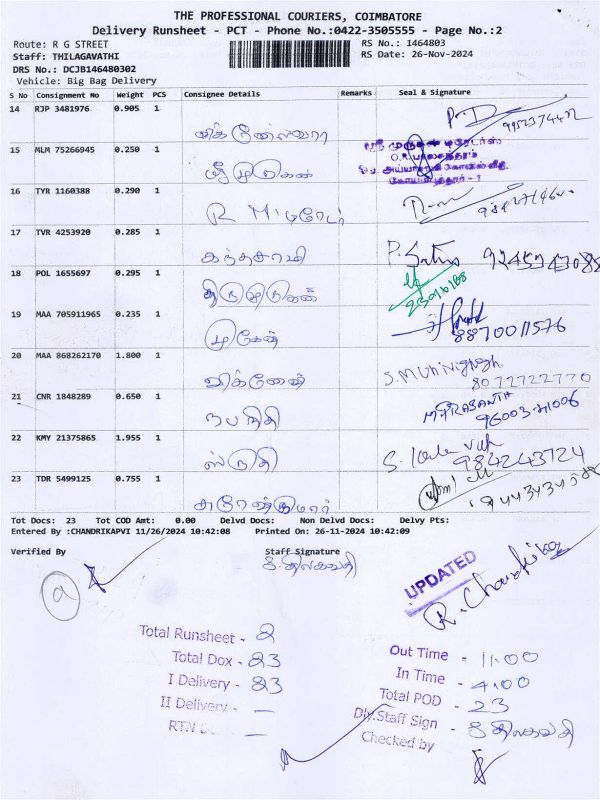 THE PROFESSIONAL COURIERS, COIMBATORE
Delivery Runsheet - PCT - Phone No.:0422-3505555 - Page No.:2
Route: R G STREET
RS No.: 1464803
Staff: THILAGAVATHI
RS Date: 26-Nov-2024
DRS No.: DCJB146480302
Vehicle: Big Bag Delivery
S No Consignment No Weight PCS Consignee Details Remarks Seal & Signature
14 RJP 3481976 0.905 1
15 MLM 75266945 0.250 1 ஸ்ரீ முருகன்
ஸ்ரீ முருகன் டிரேடர்ஸ்
16 TYR 1160388 0.290 1 R M டிரேடர்
17 TVR 4253920 0.285 1 கந்தசாமி
18 POL 1655697 0.295 1 திருமுருகன்
19 MAA 705911965 0.235 1 முகேன் 8870011576
20 MAA 868262170 1.800 1 விக்னேஷ் 8072722770
21 CNR 1848289 0.650 1 நபநிதி
22 KMY 21375865 1.955 1 ஸ்ருதி 9842243724
23 TDR 5499125 0.755 1
Tot Docs: 23 Tot COD Amt: 0.00 Delvd Docs: Non Delvd Docs: Delvy Pts:
Entered By :CHANDRIKAPVI 11/26/2024 10:42:08 Printed On: 26-11-2024 10:42:09
Verified By Staff Signature
திலகவதி
UPDATED
R. Chandrika
Total Runsheet - 2
Total Dox - 23
I Delivery - 23
II Delivery - —
RTN
Out Time - 11.00
In Time - 4.00
Total POD - 23
Dly.Staff Sign - திலகவதி
Checked by